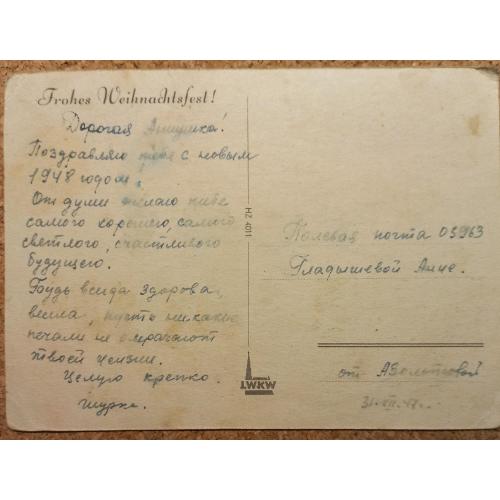 Frohes Weihnachtsfest!
Дорогая Аннушка!
Поздравляю тебя с новым
1948 годом!
От души желаю тебе
самого хорошего, самого
светлого, счастливого
будущего.
Будь всегда здорова,
весела, пусть никакие
печали не омрачают
твоей жизни.
Целую крепко.
Шурка.
HZ 4011
LWKW
Полевая почта 03963
Гладышевой Анне.
от
31-XII-47г.